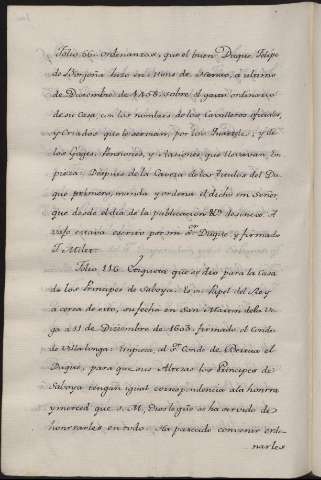 Folio 66. Ordenanzas, que el buen Duque Felipe
de Borgoña hizo en Mons de Henao, a ultimo
de Diciembre de 1458. sobre el gasto ordinario
de su Casa con los nombres de los Cavalleros oficiales,
y Criados que le servian, por los Quarteles; y de
los Gages, Pensiones, y Raciones que llevavan. Em
pieza: Despues de la Caveza de los titulos del Du
que primero, manda y ordena el dicho mi Señor
que desde el dia de la publicacion &ª desuscio. A
vajo estava escrito por mi Sr. Duque, y firmado
J. Milet.
Folio 116. Etiqueta que se dio para la Casa
de los Principes de Saboya. Es un Papel del Rey
a cerca de esto, su fecha en San Martin de la Ve
ga a 11 de Diciembre de 1603. firmado el Conde
de Villalonga: Empieza, al Sr. Conde de
Duque, para que sus Altezas los Principes de
Saboya tengan igual correspondencia a la honrra
y merced que S. M. Dios le gûe se ha servido de
honrrarles en todo. Ha parecido convenir orde-
narles